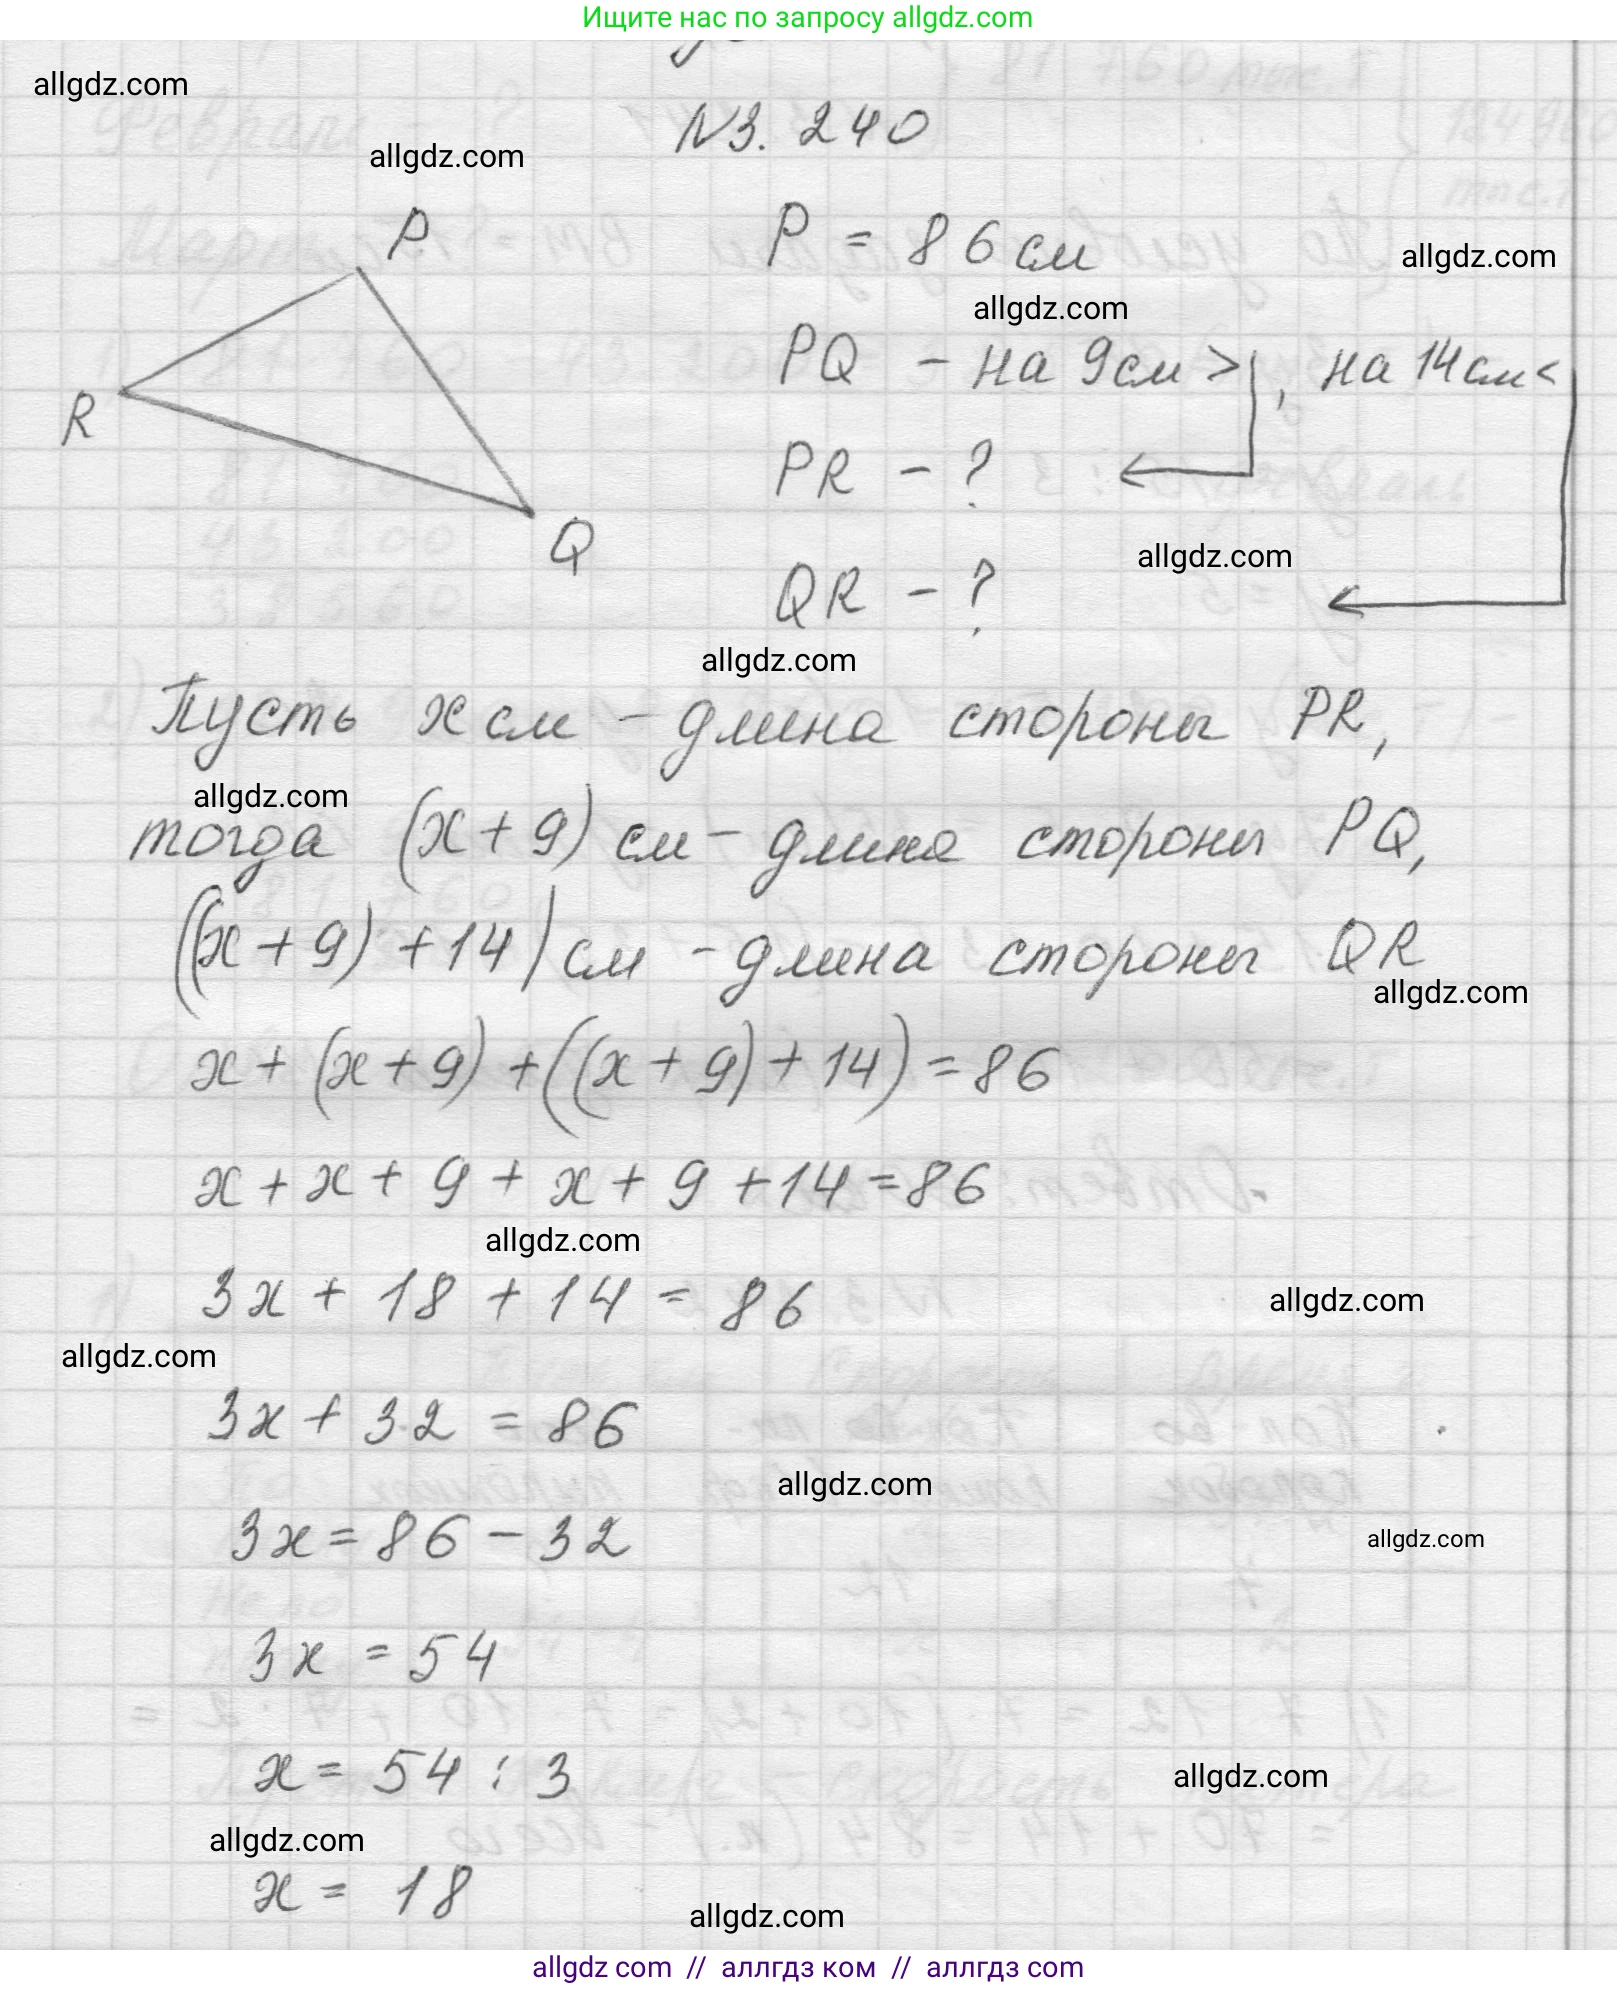 Ищите нас по запросу allgdz.com
allgdz.com
N3. 240
allgdz.com
P
P = 86 см
allgdz.com
allgdz.com
PQ - на 9 см >, на 14 см <
R
PR - ?
Q
allgdz.com
QR - ?
allgdz.com
Пусть x см - длина стороны PR,
allgdz.com
тогда (x + 9) см - длина стороны PQ,
((x + 9) + 14) см - длина стороны QR
allgdz.com
x + (x + 9) + ((x + 9) + 14) = 86
x + x + 9 + x + 9 + 14 = 86
allgdz.com
3x + 18 + 14 = 86
allgdz.com
allgdz.com
3x + 32 = 86
allgdz.com
3x = 86 - 32
allgdz.com
3x = 54
x = 54 : 3
allgdz.com
allgdz.com
x = 18
allgdz.com
allgdz com // аллгдз ком // аллгдз com